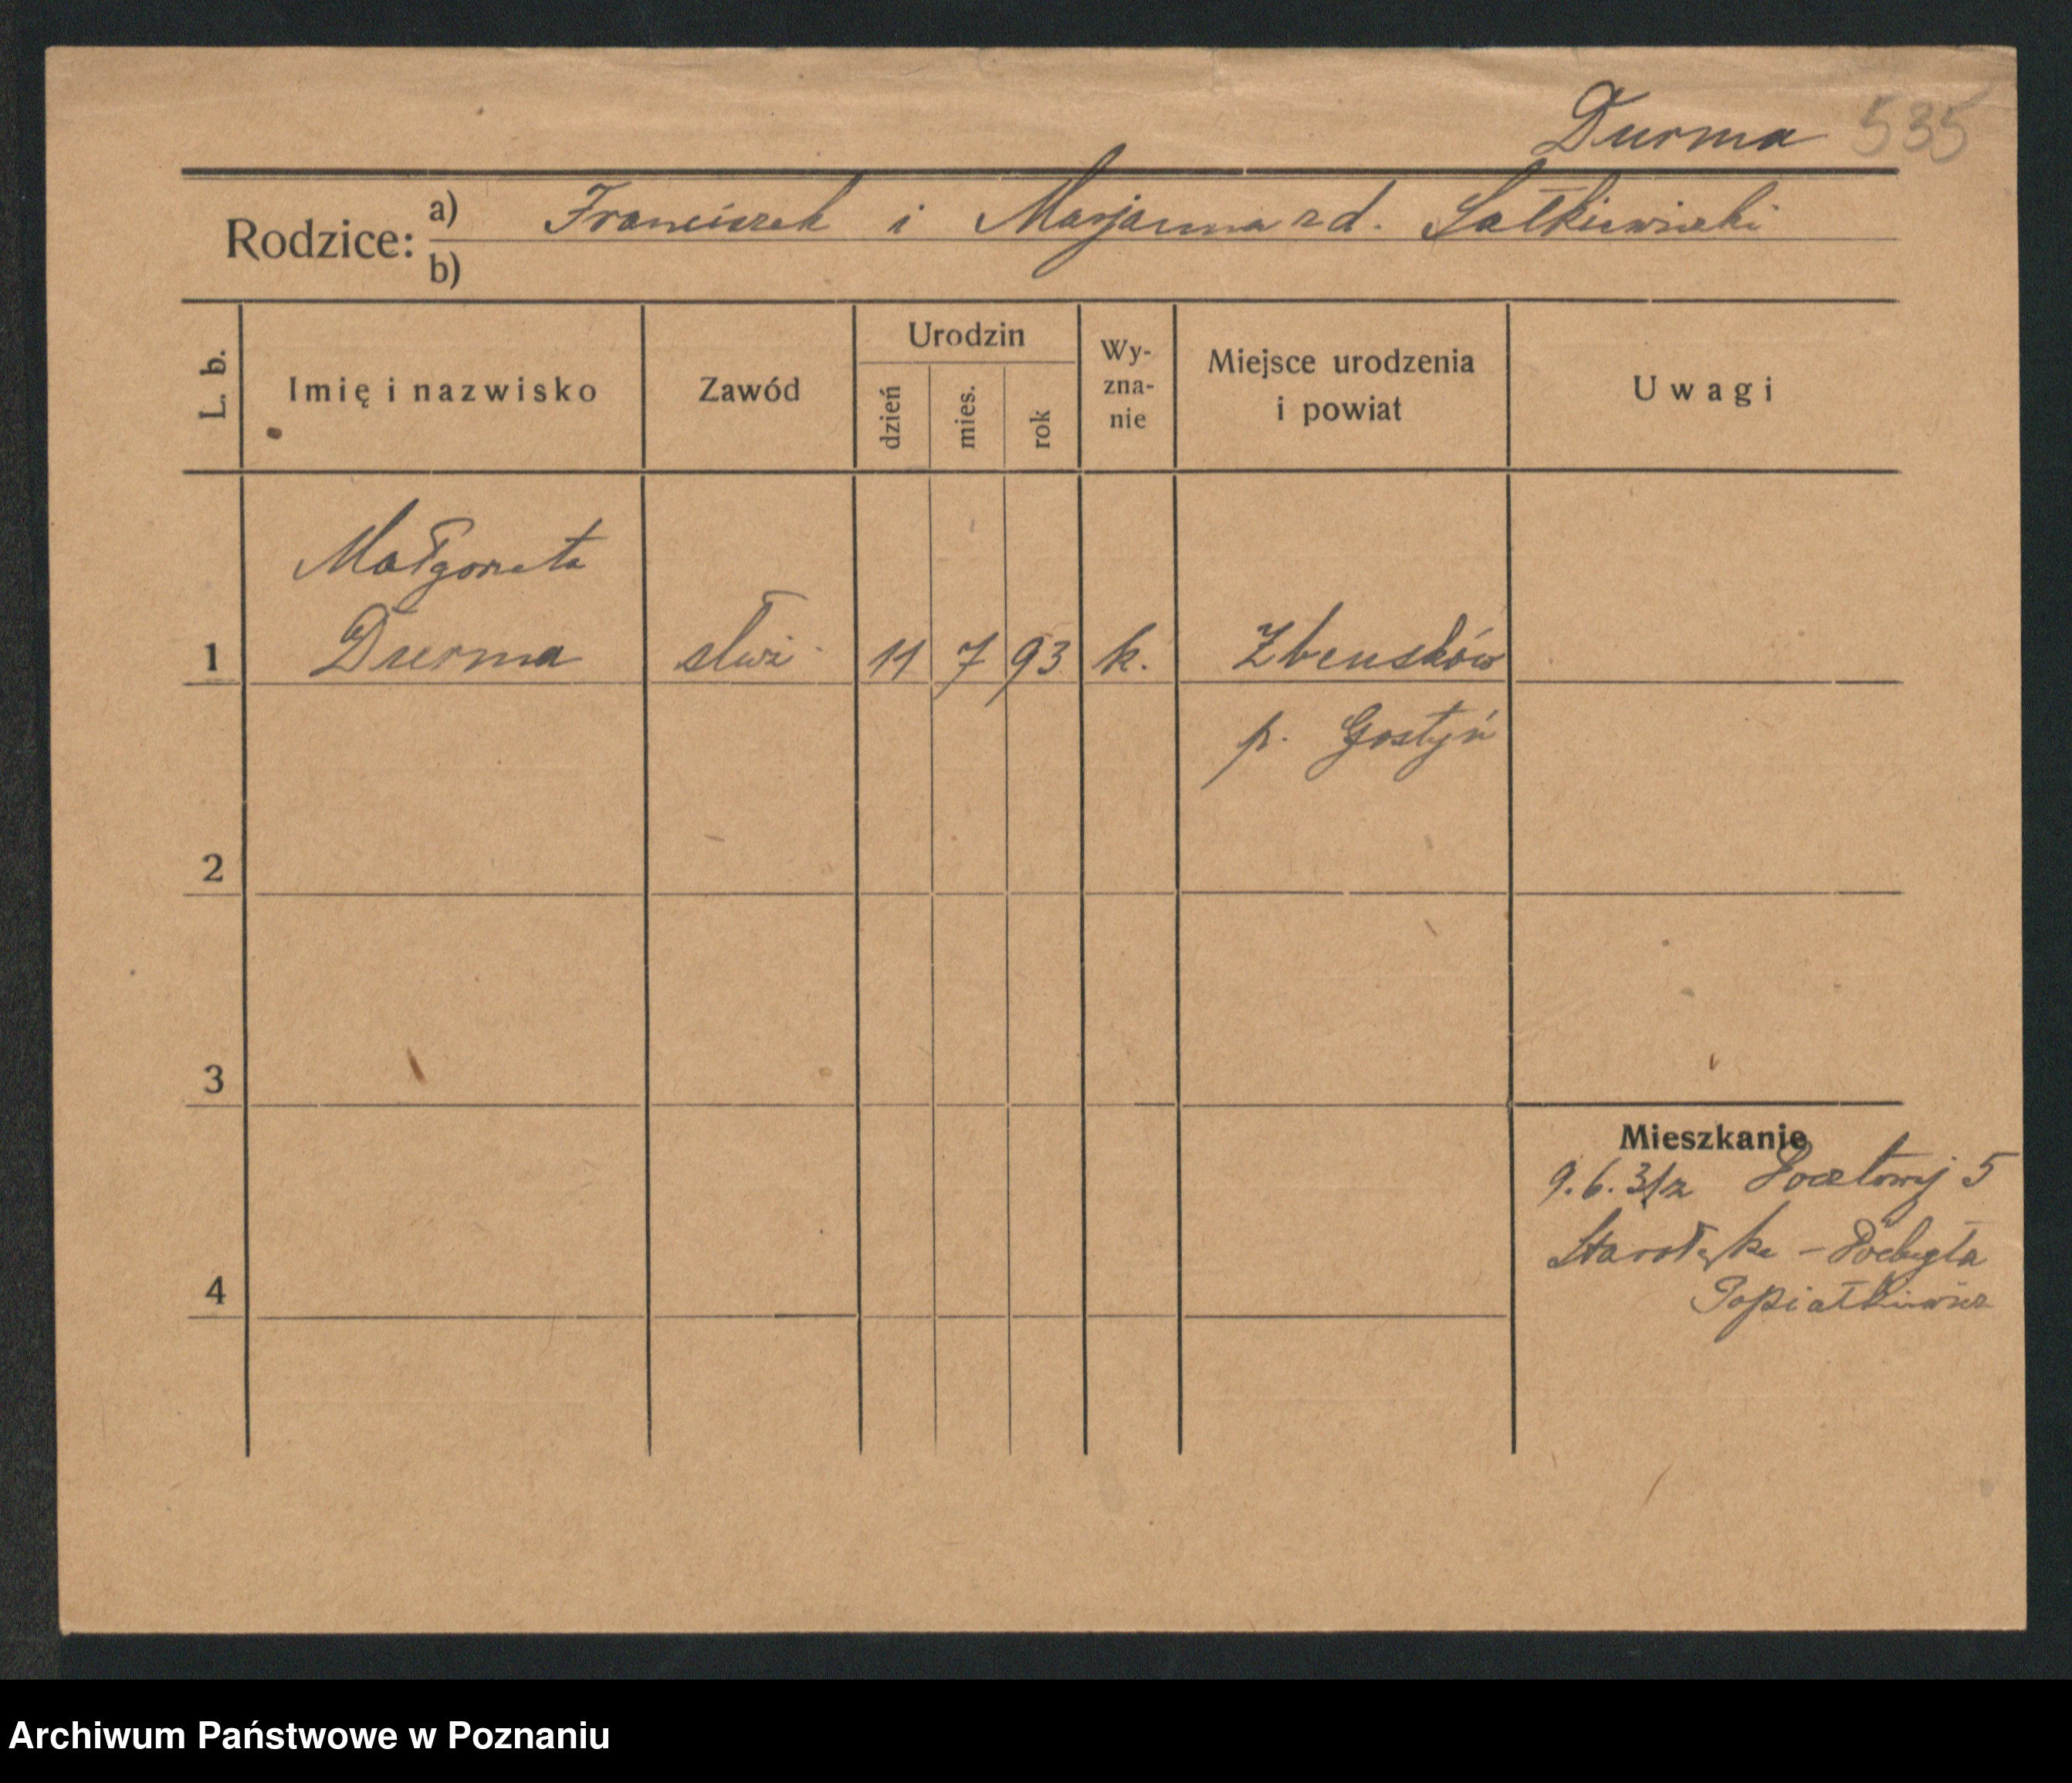 Durma 535
Rodzice: a) Franciszek i Marjanna z d. Sałkiewicki
b)
L. b.
Imię i nazwisko
Zawód
Urodzin
dzień
mies.
rok
Wy-
zna-
nie
Miejsce urodzenia
i powiat
Uwagi
Małgorzata
1 Durma służ. 11 7 93 k.
p. Gostyń
2
3
4
Mieszkanie
9.6.31 z Pocztowej 5
Starołęka –
Popiałkiewicz
Archiwum Państwowe w Poznaniu